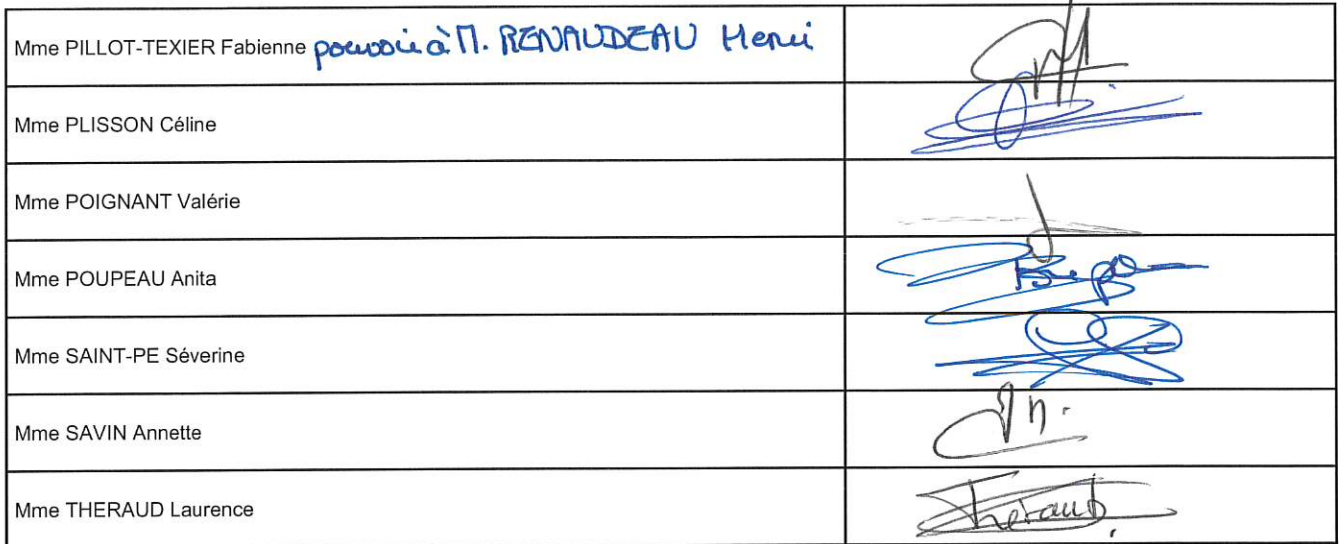 Mme PILLOT-TEXIER Fabienne pouvoir à M. RENAUDEAU Henri
Mme PLISSON Céline
Mme POIGNANT Valérie
Mme POUPEAU Anita
Mme SAINT-PE Séverine
Mme SAVIN Annette
Mme THERAUD Laurence Theraud